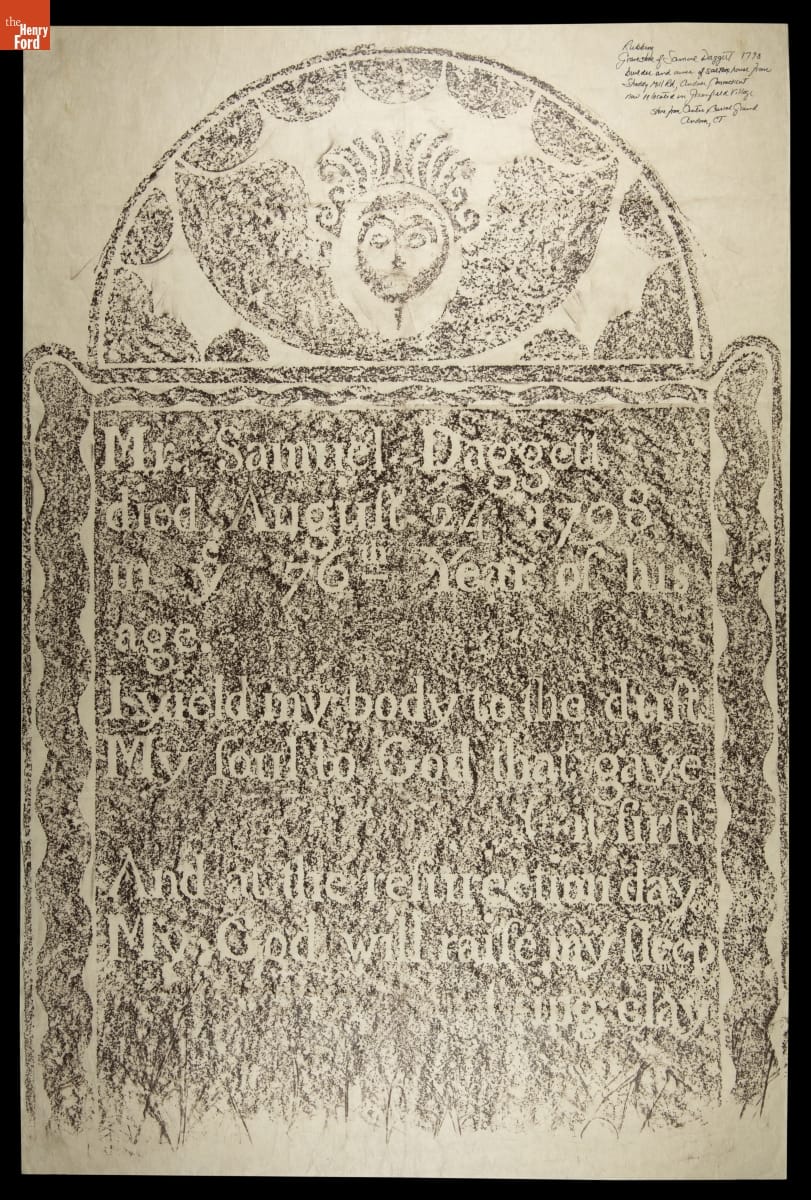 the
Henry
Ford
Rubbing
Gravestone of Samuel Daggett 1798
builder and owner of saltbox house from
Shoddy Mill Rd, Andover Connecticut
now relocated in Greenfield Village
stone from Center Burial Ground
Andover, CT
Mr. Samuel Daggett
died Auguſt 24 1798
in yͤ 76th Year of his
age.
I yield my body to the duſt
My ſoul to God that gave
(it firſt
And at the reſurrection day
My God will raiſe my ſleep
(ing clay